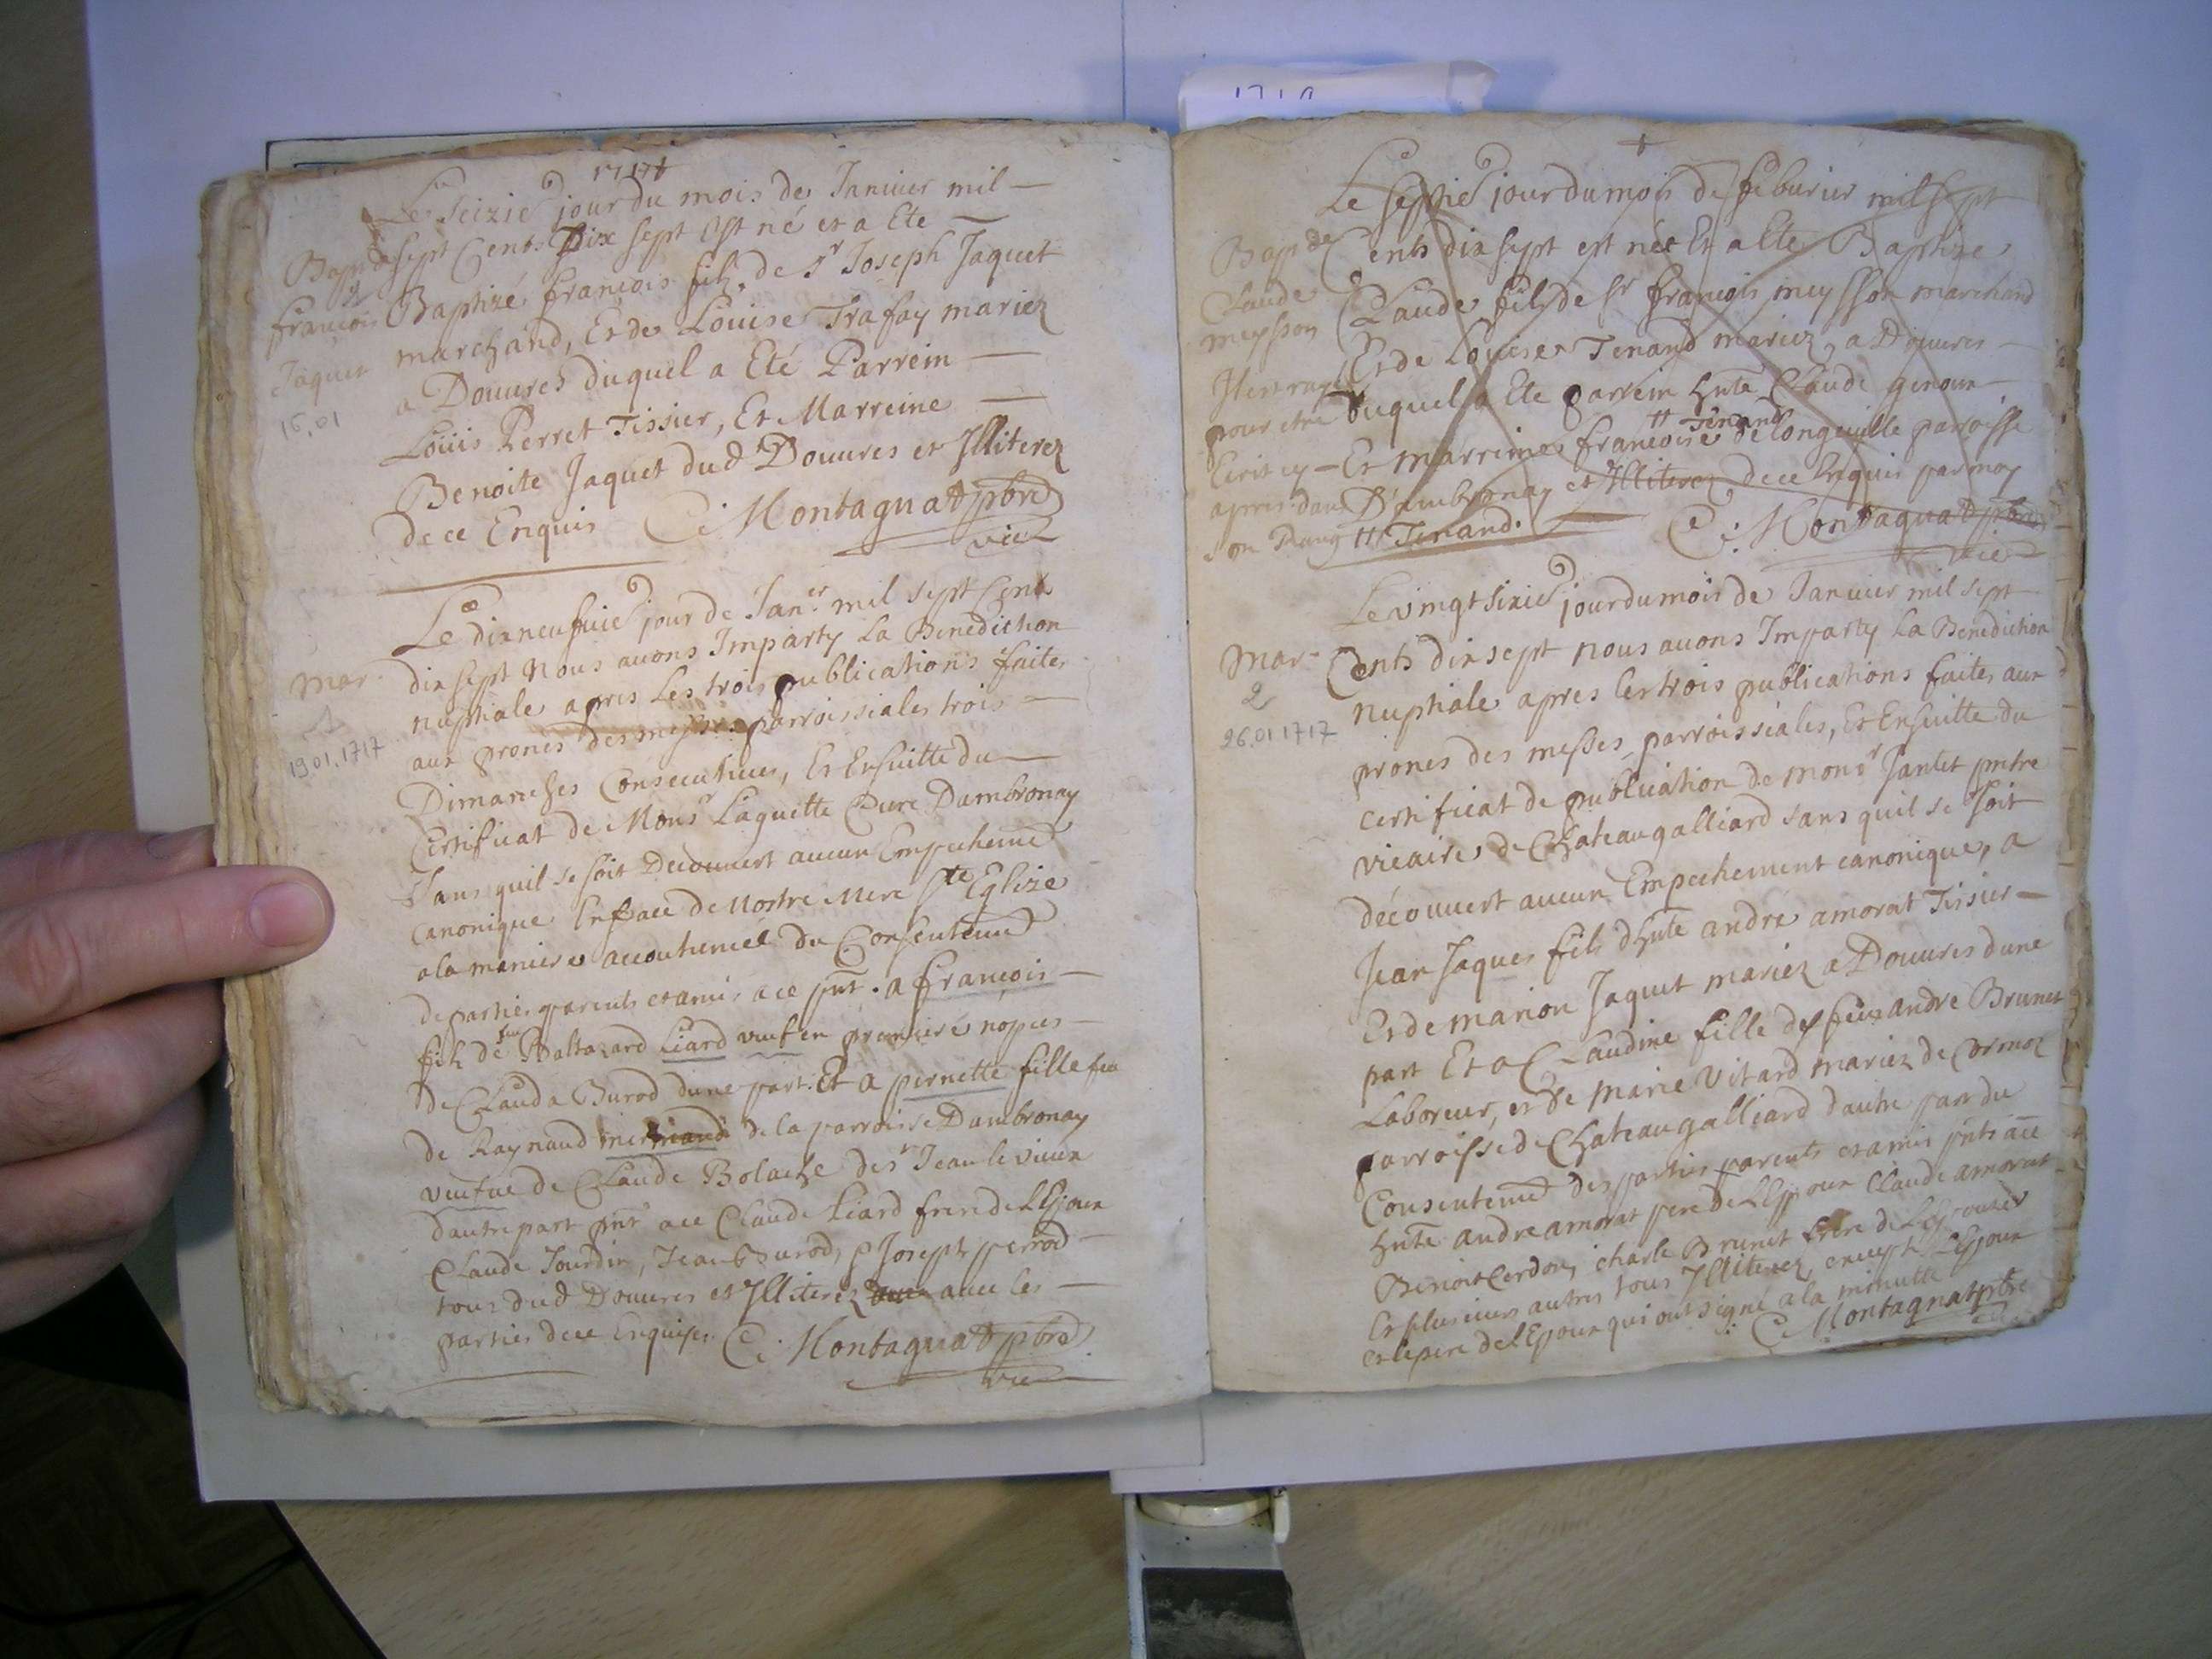 1717
Le seizie jour du mois de Janvier mil
sept Cent Dix sept Est né et a Ete
Bap de
2
françois
Jaquet
16.01
Baptizé françois fils de Sr Joseph Jaquet
marchand, Et de Louise Trafay mariez
a Douures duquel a Eté Parrein
Louis Perret Tissier, Et Marreine
Benoite Jaquet dud Douures et Illiterez
de ce Enquis C: Montagnat pbre
vic
Le dixneufuie jour de Janer mil sept Cent
dix sept Nous auons Imparty La Benediction
Mar.
1
19.01.1717
nuptiale apres Les trois publications faites
aux prones des messes parroissiales trois
Dimanches Consecutiues, Et Ensuitte du
Certificat de Monsr Laguette Cure Dambronay
Sans quil se soit Decouuert aucun Empechemt
canonique En face de Nostre Mere Ste Eglize
a la maniere accoutumée du Consentemt
de parties parents et amis a ce pnt. a françois
fils de feu Baltazard Liard veuf en premiere nopces
de Clauda Burod dune part. Et a pernette fille feu
de Raynaud mermand de la parroisse Dambronay
veufue de Claude Bolache de Sr Jean le vieux
dautre part pnt a ce Claude Liard frere de LEpoux
Claude Jourdin, Jean Burod, Joseph perrod
tous dud Douures et Illiterez auec les
parties de ce Enquises C: Montagnat pbre
vic
1710
Le septie jour du mois de feburier mil sept
Cents dix sept est née Et a Ete Baptize
Bap de
Claude
meysson
Claude fils de Sr françois meysson marchand
Et de Louise Tenand mariez a Douures
Il est rayé
pour etre
Ecrit cy
apres dans
son Rang
duquel a Ete parrein hnte Claude genoux
Et marreine francoise # Tenand de longeuille parroisse
D'ambronay et Illiterez de ce Enquis par moy
# Tenand. C: Montagnat pbre
vic
Le vingt sixie jour du mois de Januier mil sept
Mar
2
26.01 1717
Cents dix sept nous auons Imparty La Benediction
nuptiale apres les trois publications faites aux
prones des messes parroissiales, Et Ensuitte du
certificat de publication de monsr Jantet pntre
vicaire de Chateaugalliard sans quil se soit
découuert aucun Empechement canonique, a
Jean Jaques fils dhnte andré amorat Tissier
Et de marion Jaquet mariez a Douures dune
part Et a Claudine fille de feu andre Brunet
Laboreur, et de marie Vitard mariez de Cormoz
parroisse de Chateaugalliard dautre part du
Consentemt des parties parents et amis pnts a ce
hnte andre amorat pere de LEpoux Claude amorat
Benoist Cerdon, charle Brunet frere de LEpouse
Et plusieurs autres tous Illiterez, excepte LEpoux
et le pere de lEpoux qui ont signé a la minutte
C: Montagnat pbre